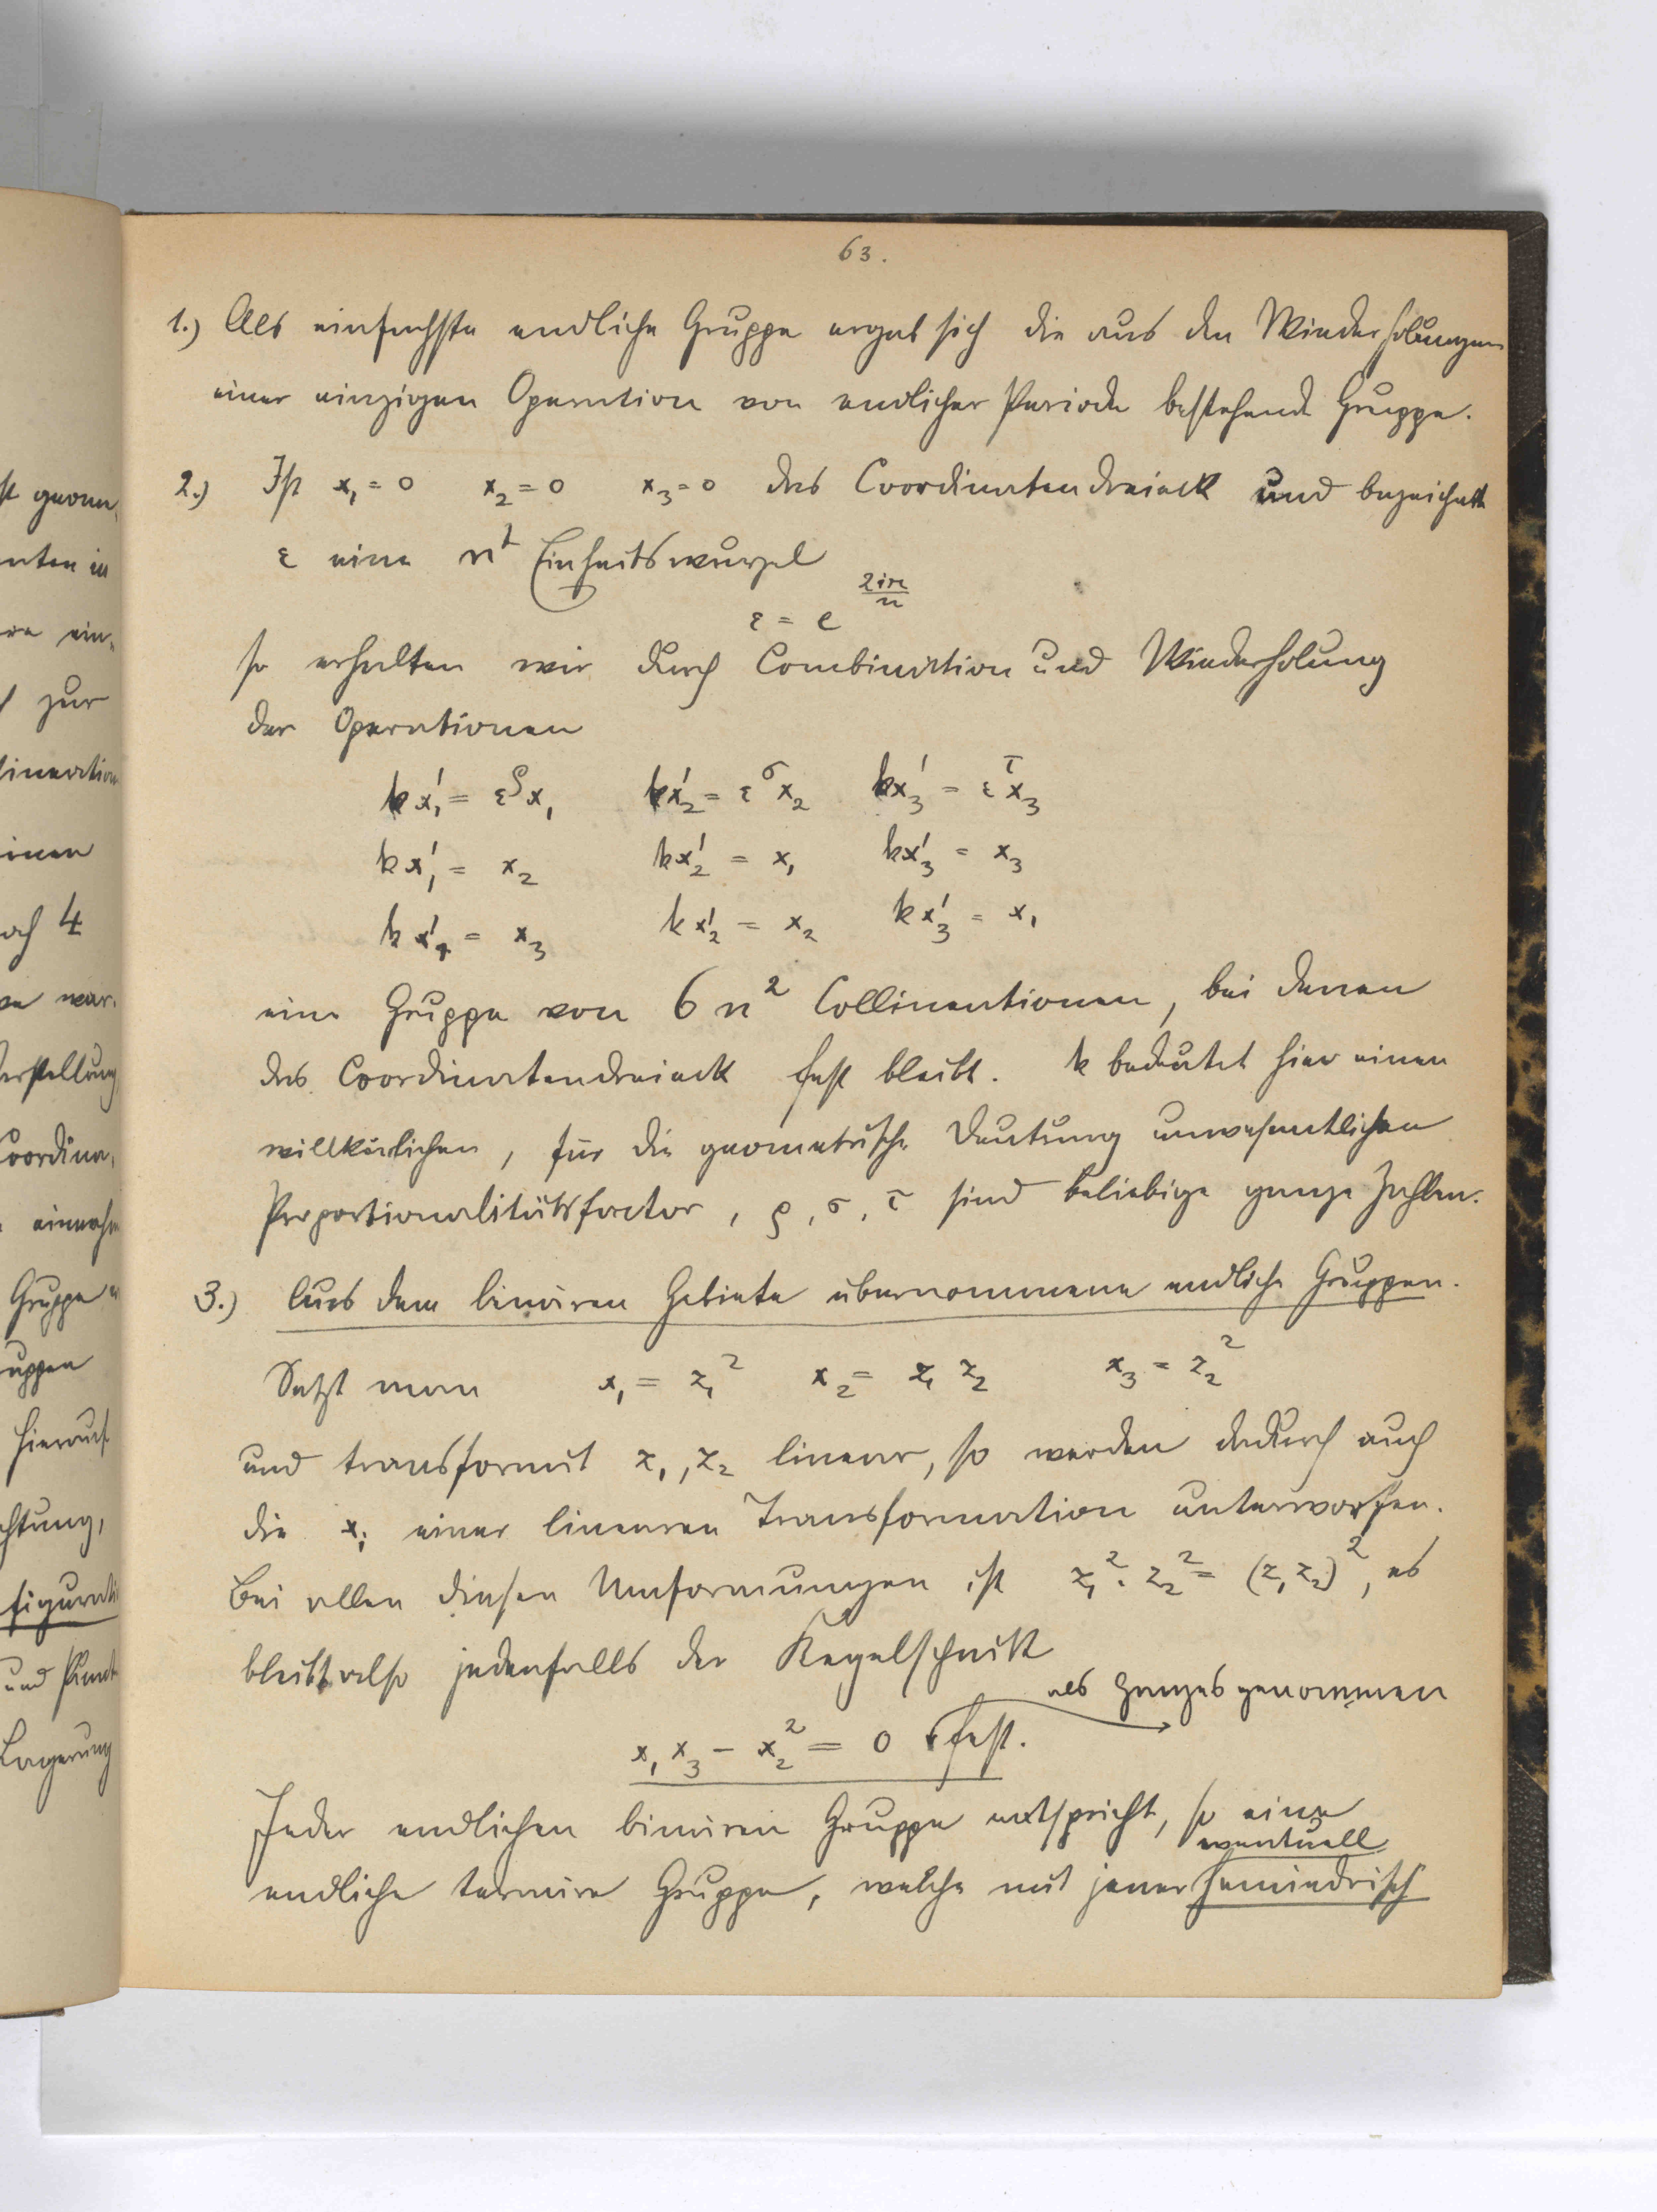 63.
1.) Als einfachste endliche Gruppe ergab sich die aus den Wiederholungen
einer einzigen Operation von endlicher Periode bestehende Gruppe.
2.) Ist x₁ = 0 x₂ = 0 x₃ = 0 das Coordinatendreieck und bezeichnet
ε eine nᵗ Einheitswurzel
ε = e^{2iπ/n}
so erhalten wir durch Combination und Wiederholung
der Operationen
kx₁' = ε^ρ x₁ kx₂' = ε^σ x₂ kx₃' = ε^τ x₃
kx₁' = x₂ kx₂' = x₁ kx₃' = x₃
kx₁' = x₃ kx₂' = x₂ kx₃' = x₁
eine Gruppe von 6n² Collineationen, bei denen
das Coordinatendreieck fest bleibt. k bedeutet hier einen
willkürlichen, für die geometrische Deutung unwesentlichen
Proportionalitätsfactor, ρ, σ, τ sind beliebige ganze Zahlen.
3.) Aus dem binären Gebiete übernommene endliche Gruppen.
Setzt man x₁ = z₁² x₂ = z₁ z₂ x₃ = z₂²
und transformirt z₁, z₂ linear, so werden dadurch auch
die xᵢ einer linearen Transformation unterworfen.
Bei allen diesen Umformungen ist z₁² · z₂² = (z₁ z₂)², es
bleibt also jedenfalls der Kegelschnitt
als Ganzes genommen
x₁ x₃ − x₂² = 0 fest.
Jeder endlichen binären Gruppe entspricht, so eine
eventuell
endliche ternäre Gruppe, welche mit jener hemiedrisch
st geom
enten in
ein-
zur
lineation
einen
4
Coordina-
einnehm
Gruppe
uppen
hierauf
chtung,
figurati
und Punkt
Lagerung